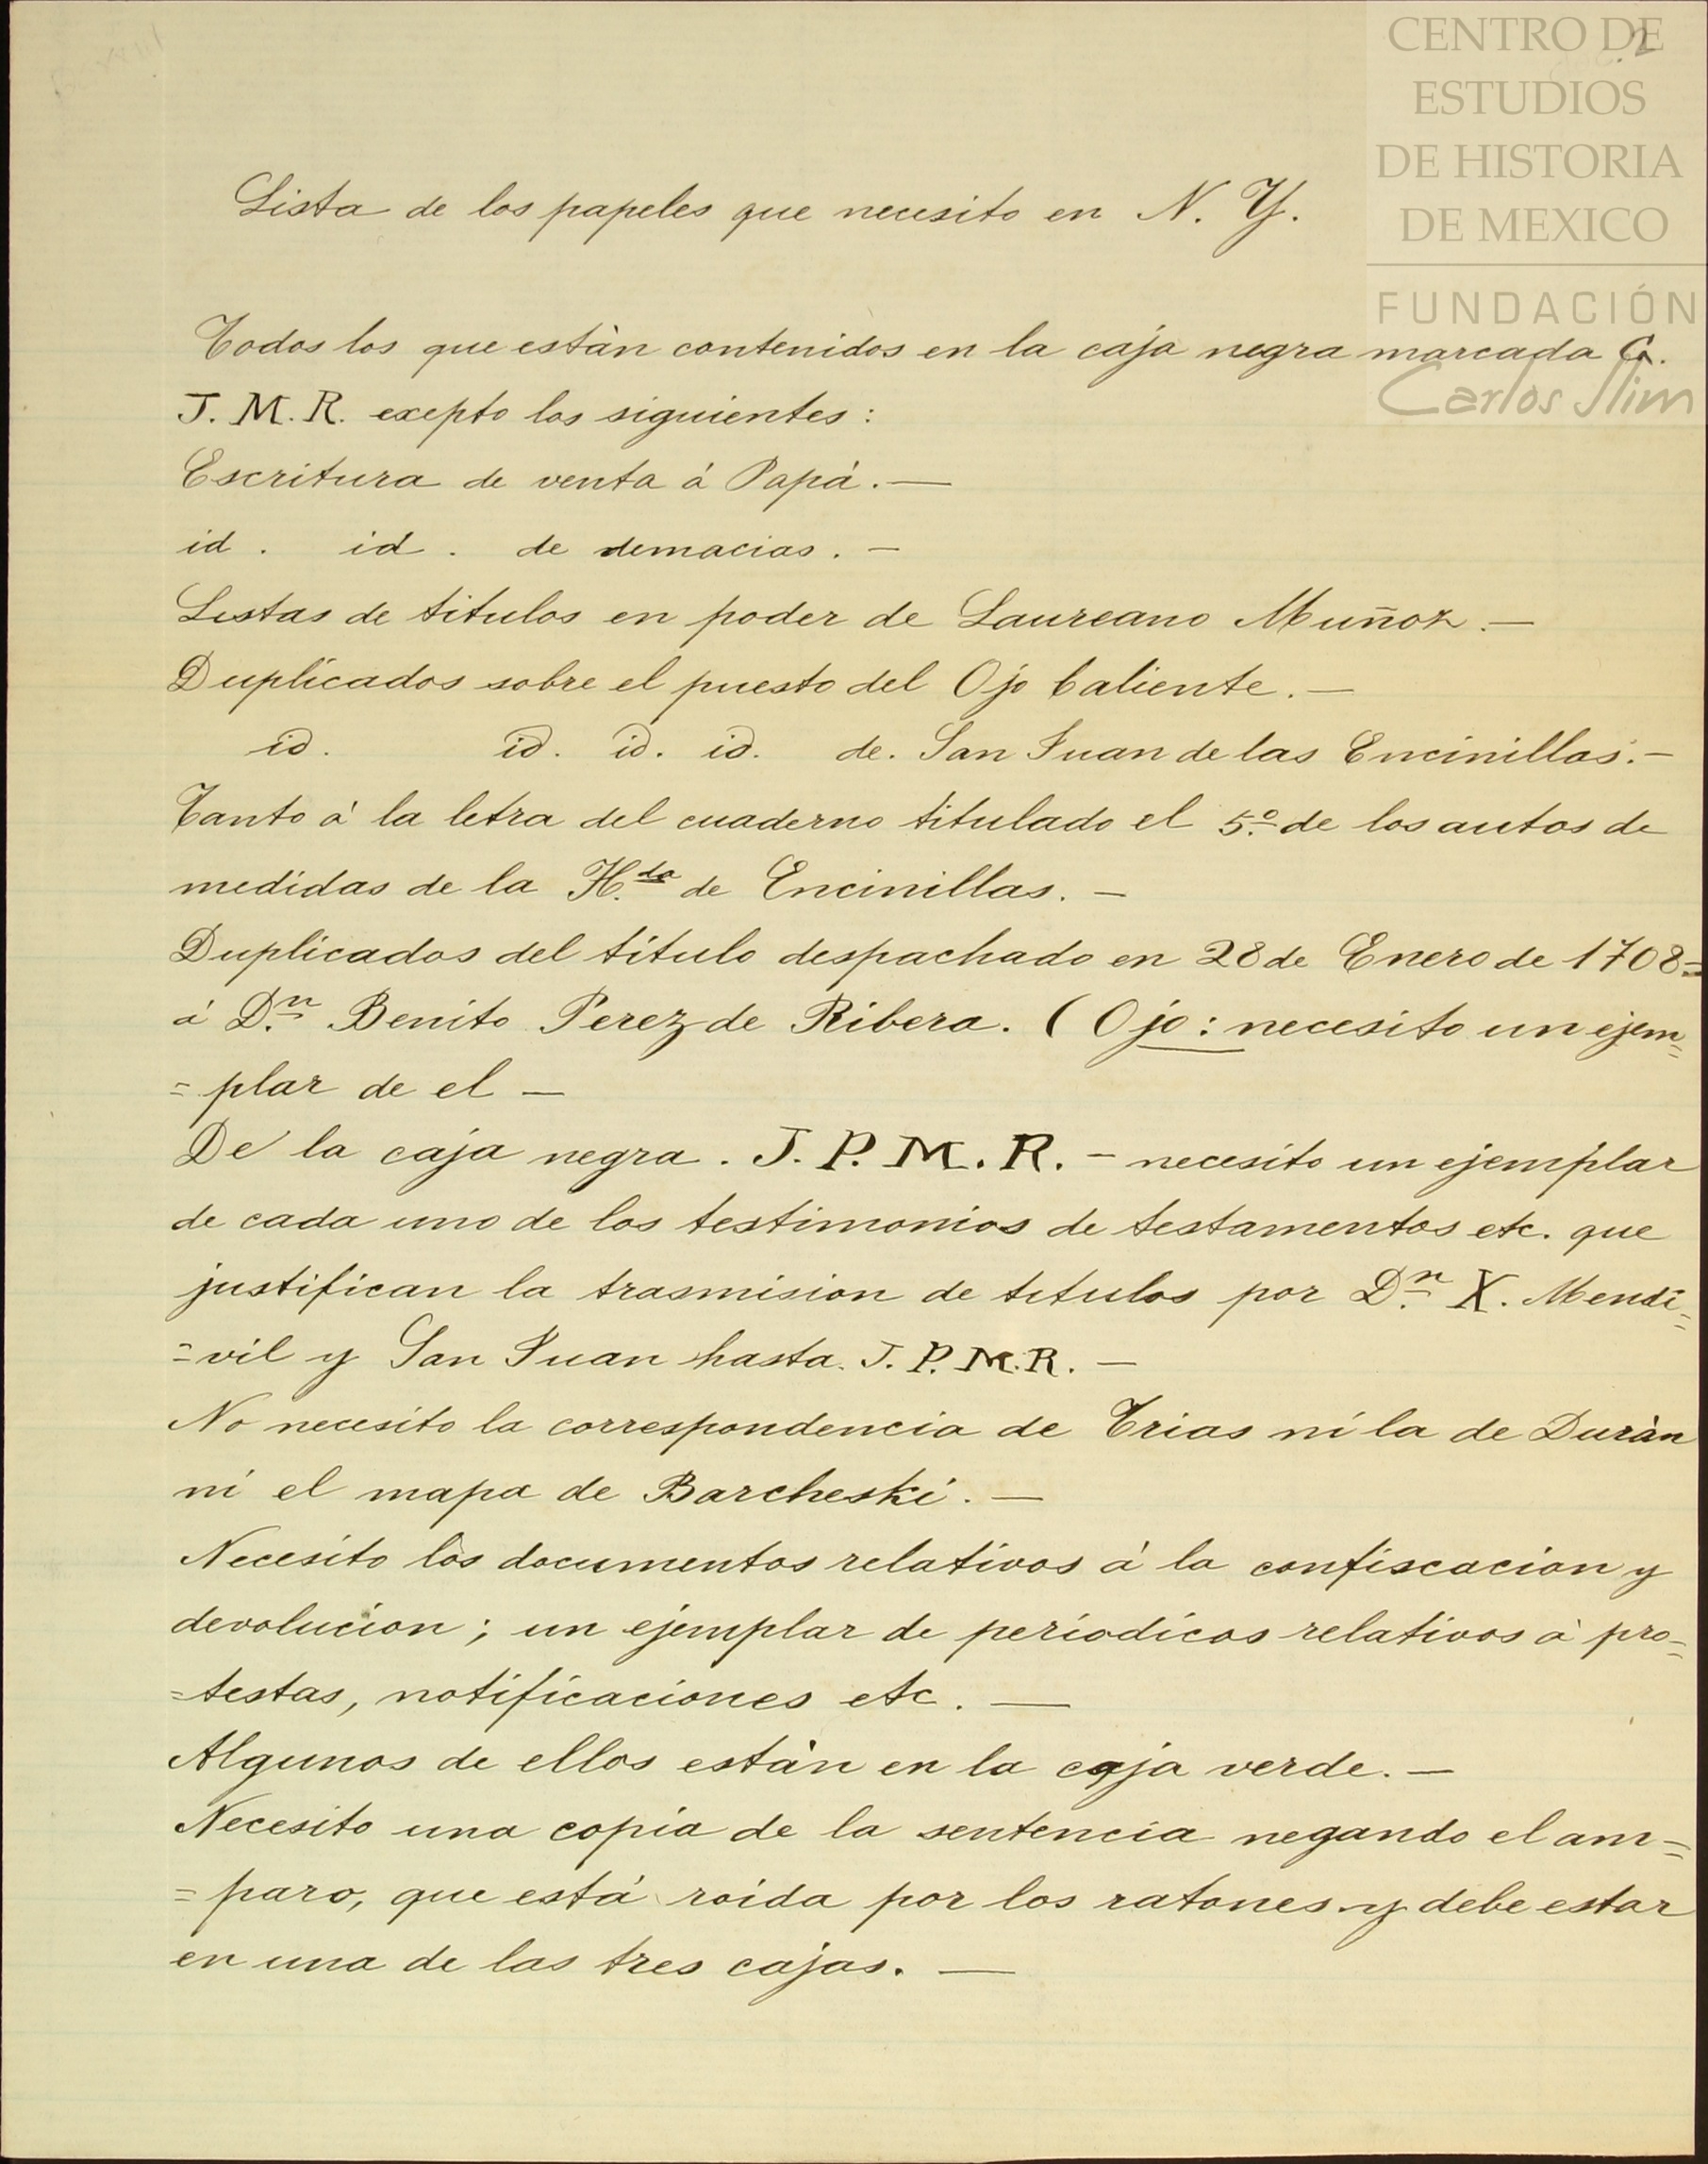 CENTRO DE
ESTUDIOS
DE HISTORIA
DE MEXICO
FUNDACIÓN
Carlos Slim
2
Lista de los papeles que necesito en N. Y.
Todos los que estàn contenidos en la caja negra marcada G.
J. M. R. exepto los siguientes :
Escritura de venta á Papá. —
id . id . de demacias . —
Listas de titulos en poder de Laureano Muñoz . —
Duplicados sobre el puesto del Ojo Caliente . —
id. id. id. id. de. San Juan de las Encinillas . —
Tanto á la letra del cuaderno titulado el 5.º de los autos de
medidas de la H.da de Encinillas. —
Duplicados del titulo despachado en 28 de Enero de 1708 =
á D.n Benito Perez de Ribera. ( Ojo : necesito un ejem=
= plar de el —
De la caja negra . J. P. M. R. — necesito un ejemplar
de cada uno de los testimonios de testamentos etc. que
justifican la trasmision de titulos por D.n X. Mendi=
= vil y San Juan hasta. J. P. M. R. —
No necesito la correspondencia de Trias ni la de Duràn
ni el mapa de Barcheski . —
Necesito los documentos relativos á la confiscacion y
devolucion ; un ejemplar de periodicos relativos à pro=
= testas, notificaciones etc . —
Algunos de ellos estàn en la caja verde. —
Necesito una copia de la sentencia negando el am=
= paro, que está roida por los ratones y debe estar
en una de las tres cajas. —